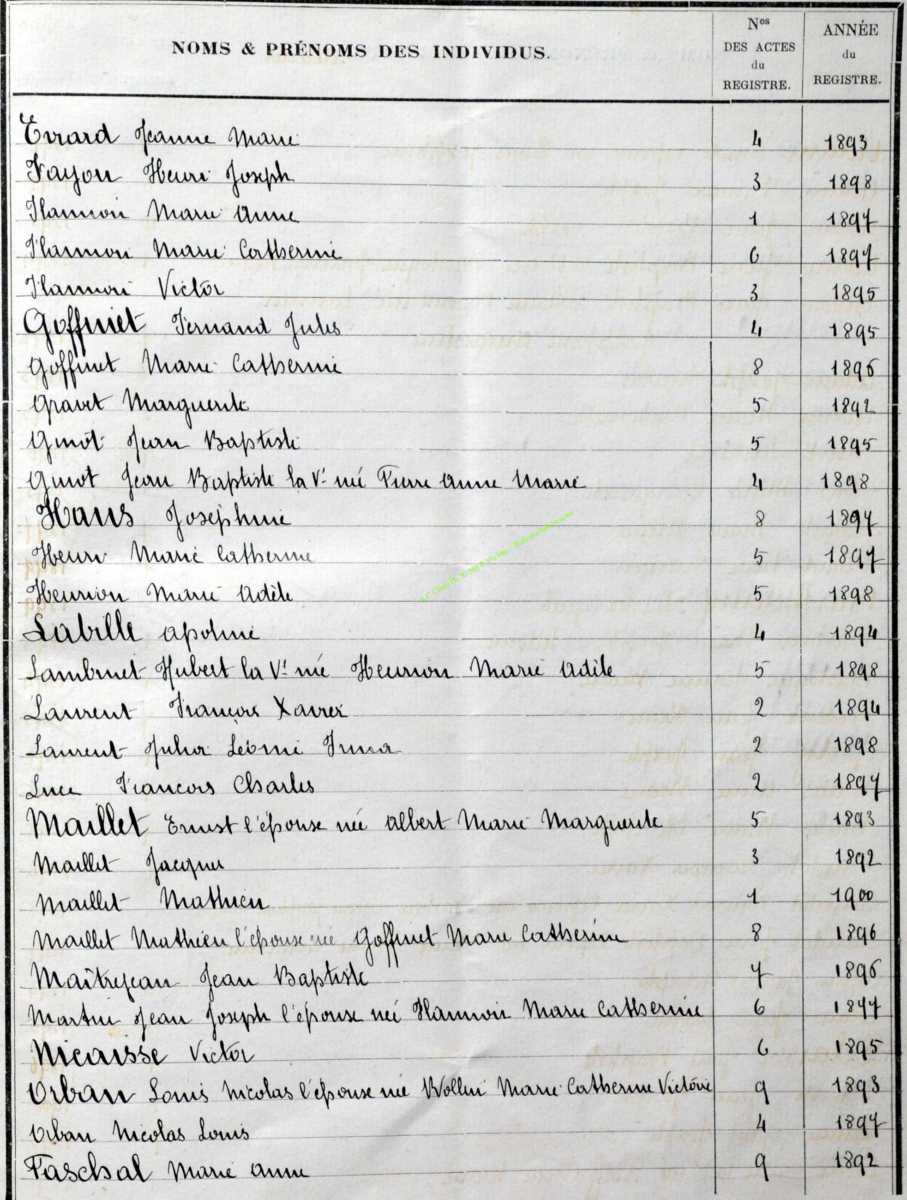 NOMS & PRÉNOMS DES INDIVIDUS.
Nos DES ACTES du REGISTRE.
ANNÉE du REGISTRE.
Evrard Jeanne Marie 4 1893
Fayon Henri Joseph 3 1898
Flamion Marie Anne 1 1897
Flamion Marie Catherine 6 1897
Flamion Victor 3 1895
Goffinet Fernand Jules 4 1895
Goffinet Marie Catherine 8 1896
Gravet Marguerite 5 1892
Guiot Jean Baptiste 5 1895
Guiot Jean Baptiste la Ve née Pierre Anne Marie 4 1898
Hans Joséphine 8 1897
Henri Marie Catherine 5 1897
Henrion Marie Adèle 5 1898
Labille Apoline 4 1894
Lambinet Hubert la Ve née Henrion Marie Adèle 5 1898
Laurent François Xavier 2 1894
Laurent Julia Léonie Irma 2 1898
Luce François Charles 2 1897
Maillet Ernest l'épouse née Albert Marie Marguerite 5 1893
Maillet Jacques 3 1892
Maillet Mathieu 1 1900
Maillet Mathieu l'épouse née Goffinet Marie Catherine 8 1896
Maîtrejean Jean Baptiste 7 1896
Martin Jean Joseph l'épouse née Flamion Marie Catherine 6 1897
Nicaisse Victor 6 1895
Orban Louis Nicolas l'épouse née Wollin Marie Catherine Victoire 9 1893
Orban Nicolas Louis 4 1897
Paschal Marie Anne 9 1892